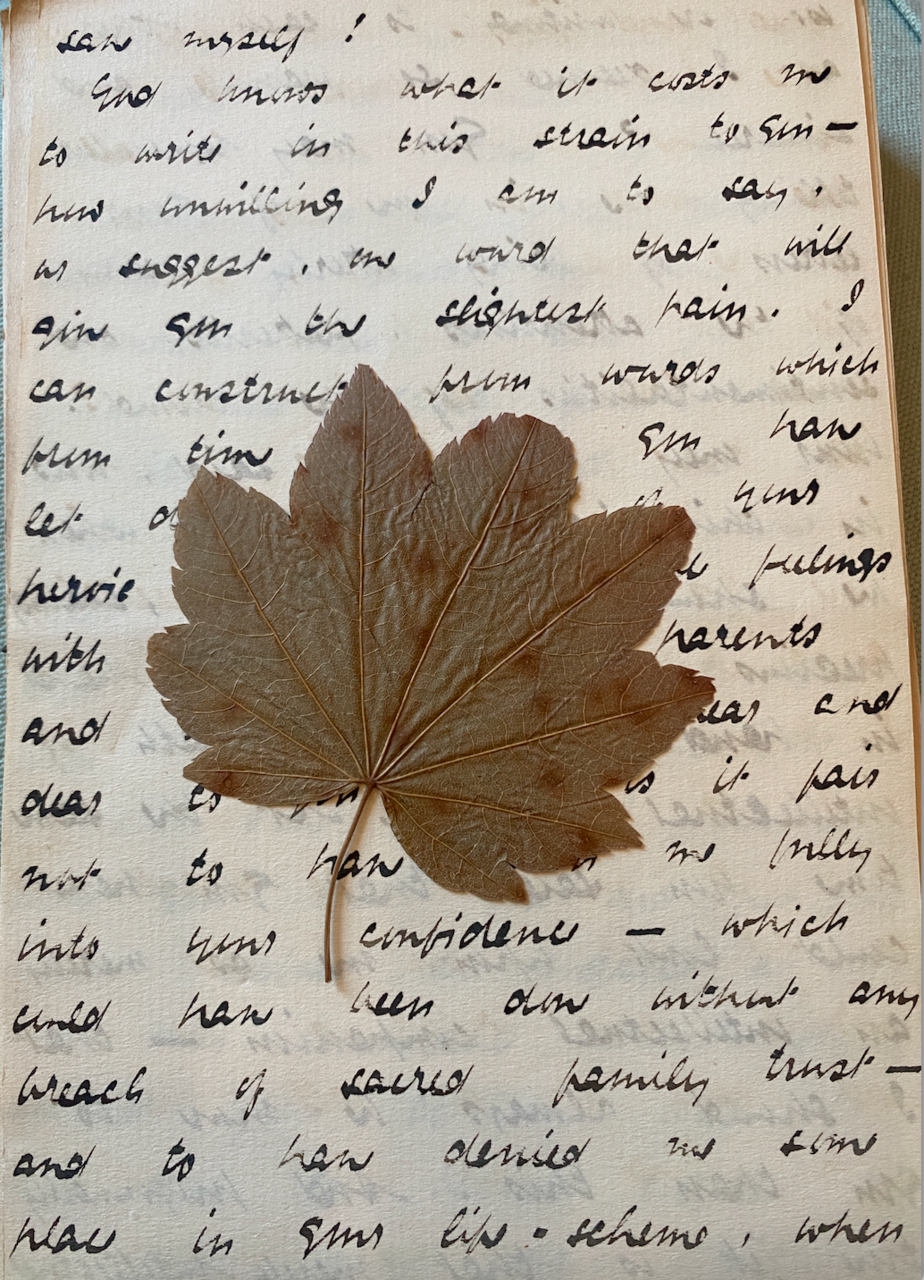 saw myself!
God knows what it costs me
to write in this strain to You —
how unwilling I am to say,
or suggest, one word that will
give You the slightest pain. I
can construct from words which
from time You have
let your
heroic feelings
with parents
and and
dear to is it fair
not to have me fully
into your confidence — which
could have been done without any
breach of sacred family trust —
and to have denied me some
place in Your life-scheme, when